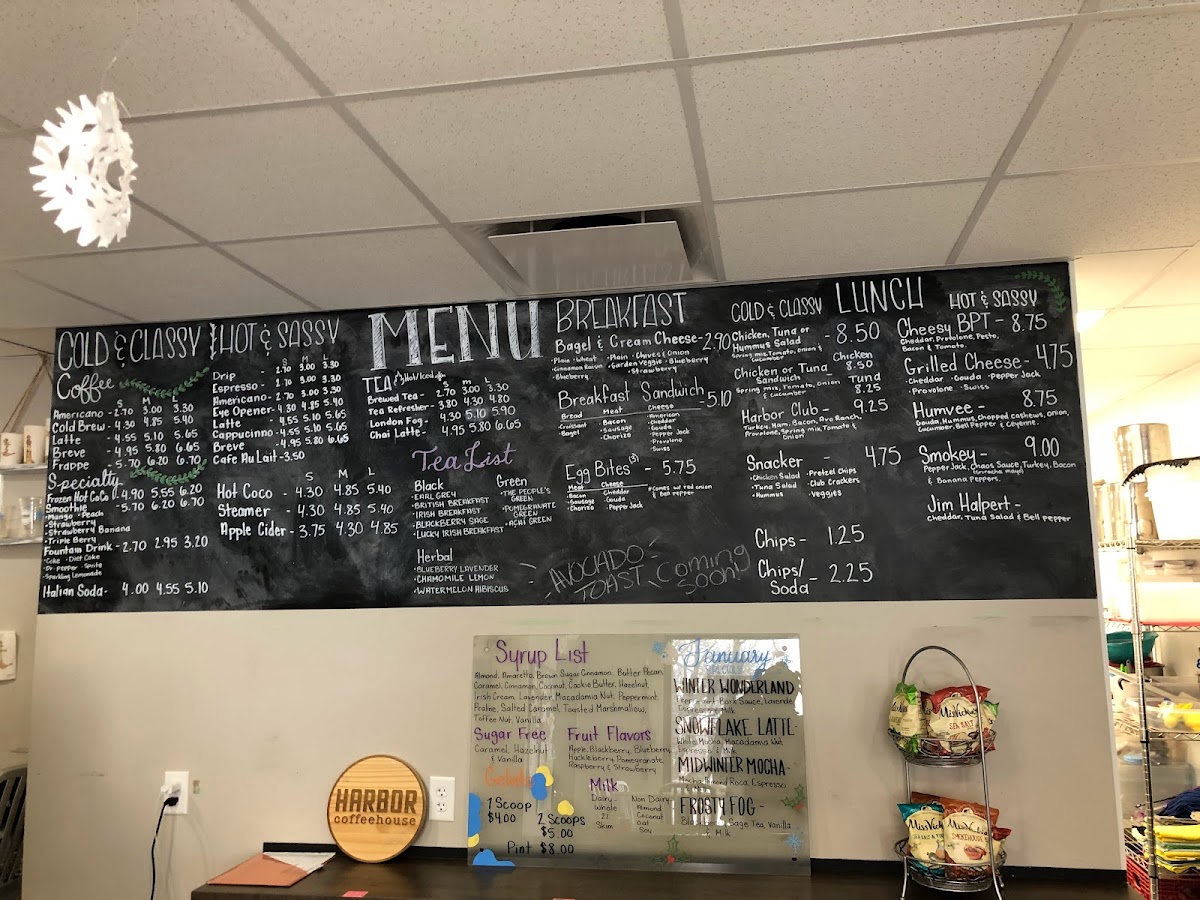 COLD & CLASSY
Coffee
S M L
Americano - 2.70 3.00 3.30
Cold Brew - 4.30 4.85 5.40
Latte - 4.55 5.10 5.65
Breve - 4.95 5.80 6.65
Frappe - 5.70 6.20 6.70
Specialty
Frozen Hot Coco 4.90 5.55 6.20
Smoothie - 5.70 6.20 6.70
·Mango ·Peach
·Strawberry
·Strawberry Banana
·Triple Berry
Fountain Drink - 2.70 2.95 3.20
·Coke ·Diet Coke
·Dr. Pepper ·Sprite
·Sparkling Lemonade
Italian Soda - 4.00 4.55 5.10
HOT & SASSY
S M L
Drip - 2.70 3.00 3.30
Espresso - 2.70 3.00 3.30
Americano - 2.70 3.00 3.30
Eye Opener - 4.30 4.85 5.40
Latte - 4.55 5.10 5.65
Cappuccino - 4.55 5.10 5.65
Breve - 4.95 5.80 6.65
Cafe Au Lait - 3.50
S M L
Hot Coco - 4.30 4.85 5.40
Steamer - 4.30 4.85 5.40
Apple Cider - 3.75 4.30 4.85
MENU
TEA Hot/Iced
S M L
Brewed Tea - 2.70 3.00 3.30
Tea Refresher - 3.80 4.30 4.80
London Fog - 4.30 5.10 5.90
Chai Latte - 4.95 5.80 6.65
Tea List
Black
·EARL GREY
·BRITISH BREAKFAST
·IRISH BREAKFAST
·BLACKBERRY SAGE
·LUCKY IRISH BREAKFAST
Green
·THE PEOPLE'S
GREEN
·POMEGRANATE
GREEN
·ACAI GREEN
Herbal
·BLUEBERRY LAVENDER
·CHAMOMILE LEMON
·WATERMELON HIBISCUS
BREAKFAST
Bagel & Cream Cheese - 2.90
·Plain ·Wheat ·Plain ·Chives & Onion
·Cinnamon Raisin ·Garden Veggie ·Blueberry
·Blueberry ·Strawberry
Breakfast Sandwich - 5.10
Bread Meat Cheese
·Croissant ·Bacon ·American
·Bagel ·Sausage ·Cheddar
·Chorizo ·Gouda
·Pepper Jack
·Provolone
·Swiss
Egg Bites (3) - 5.75
Meat Cheese *comes w/ red onion
·Bacon ·Cheddar & bell pepper
·Sausage ·Gouda
·Chorizo ·Pepper Jack
AVOCADO
TOAST Coming
Soon!
LUNCH
COLD & CLASSY
Chicken, Tuna or
Hummus Salad - 8.50
Spring mix, Tomato, Onion &
Cucumber
Chicken or Tuna
Sandwich -
Chicken
8.50
Tuna
8.25
Spring mix, Tomato, Onion
& Cucumber
Harbor Club - 9.25
Turkey, Ham, Bacon, Avo Ranch,
Provolone, Spring mix, Tomato &
Onion
Snacker - 4.75
·Chicken Salad ·Pretzel Chips
·Tuna Salad ·Club Crackers
·Hummus ·Veggies
Chips - 1.25
Chips/
Soda - 2.25
HOT & SASSY
Cheesy BPT - 8.75
Cheddar, Provolone, Pesto,
Bacon & Tomato
Grilled Cheese - 4.75
·Cheddar ·Gouda ·Pepper Jack
·Provolone ·Swiss
Humvee - 8.75
Gouda, Hummus, Chopped cashews, Onion,
Cucumber, Bell Pepper & Cayenne
Smokey - 9.00
Pepper Jack, Chaos Sauce, Turkey, Bacon
(sriracha mayo)
& Banana Peppers
Jim Halpert -
Cheddar, Tuna Salad & Bell pepper
Syrup List
Almond, Amaretto, Brown Sugar Cinnamon, Butter Pecan
Caramel, Cinnamon, Coconut, Cookie Butter, Hazelnut,
Irish Cream, Lavender, Macadamia Nut, Peppermint
Praline, Salted Caramel, Toasted Marshmallow,
Toffee Nut, Vanilla
Sugar Free
Caramel, Hazelnut
& Vanilla
Fruit Flavors
Apple, Blackberry, Blueberry,
Huckleberry, Pomegranate,
Raspberry & Strawberry
1 Scoop
$4.00
2 Scoops
$5.00
Pint $8.00
Milk
Dairy -
Whole
2%
Skim
Non Dairy
Almond
Coconut
Oat
Soy
January
SPECIALS
WINTER WONDERLAND
SNOWFLAKE LATTE -
White Mocha, Macadamia Nut
MIDWINTER MOCHA -
Mocha, Almond Roca, Espresso
& Milk
FROSTY FOG -
Sage Tea, Vanilla
& Milk
HARBOR
coffeehouse
Miss Vickie's
SEA SALT
Miss Vickie's
Miss Vickie's
SMOKEHOUSE